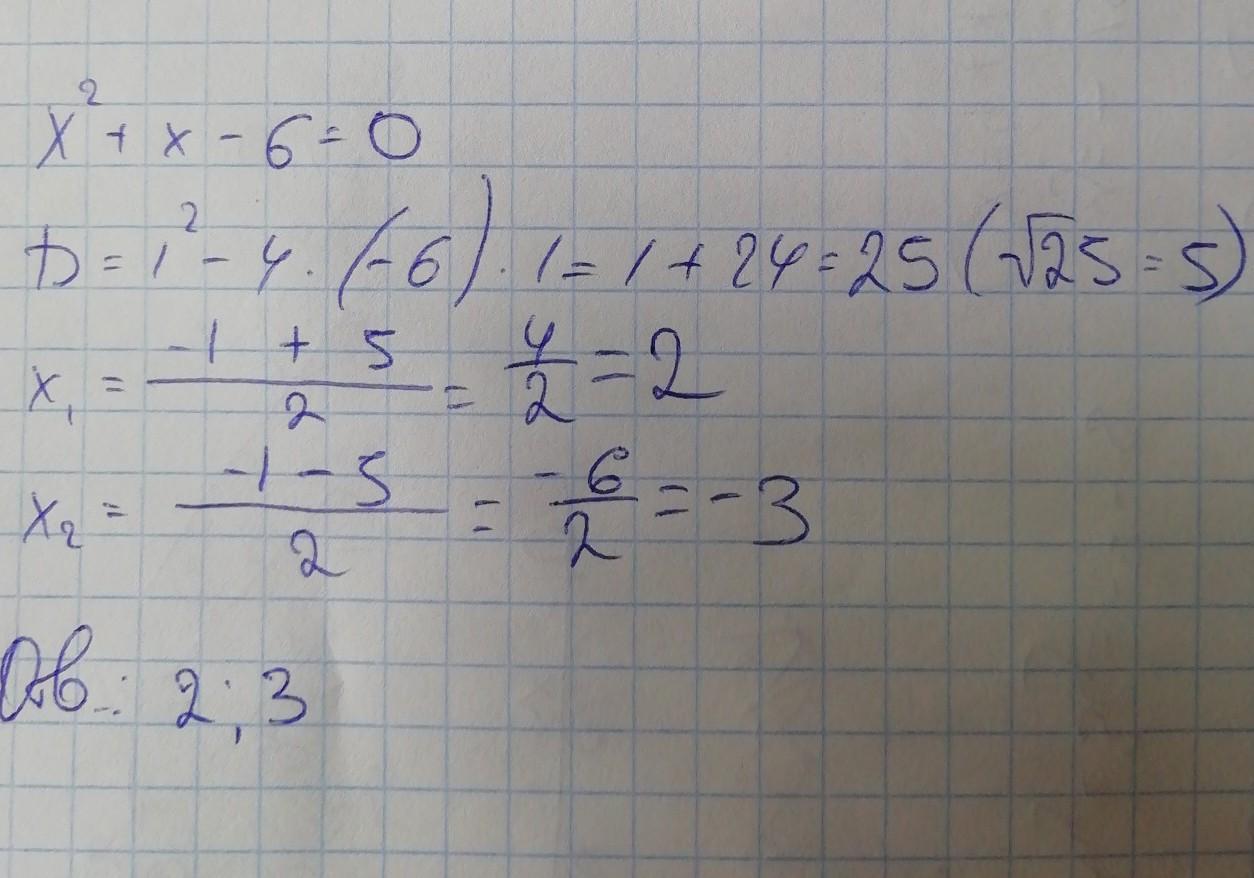 x² + x - 6 = 0
D = 1² - 4 · (-6) · 1 = 1 + 24 = 25 (√25 = 5)
x₁ = (-1 + 5)/2 = 4/2 = 2
x₂ = (-1 - 5)/2 = -6/2 = -3
Ов.: 2; 3